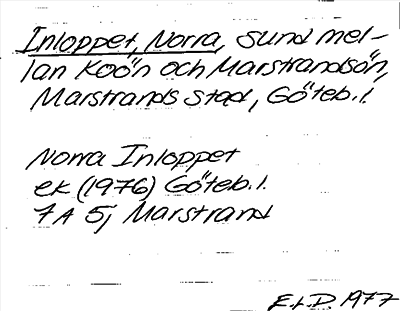 Inloppet, Norra, sund mel-
lan Koön och Marstrandsön,
Marstrands stad, Göteb. l.
Norra Inloppet
ek (1976) Göteb. l.
7A 5j Marstrand
E.t.D. 1977